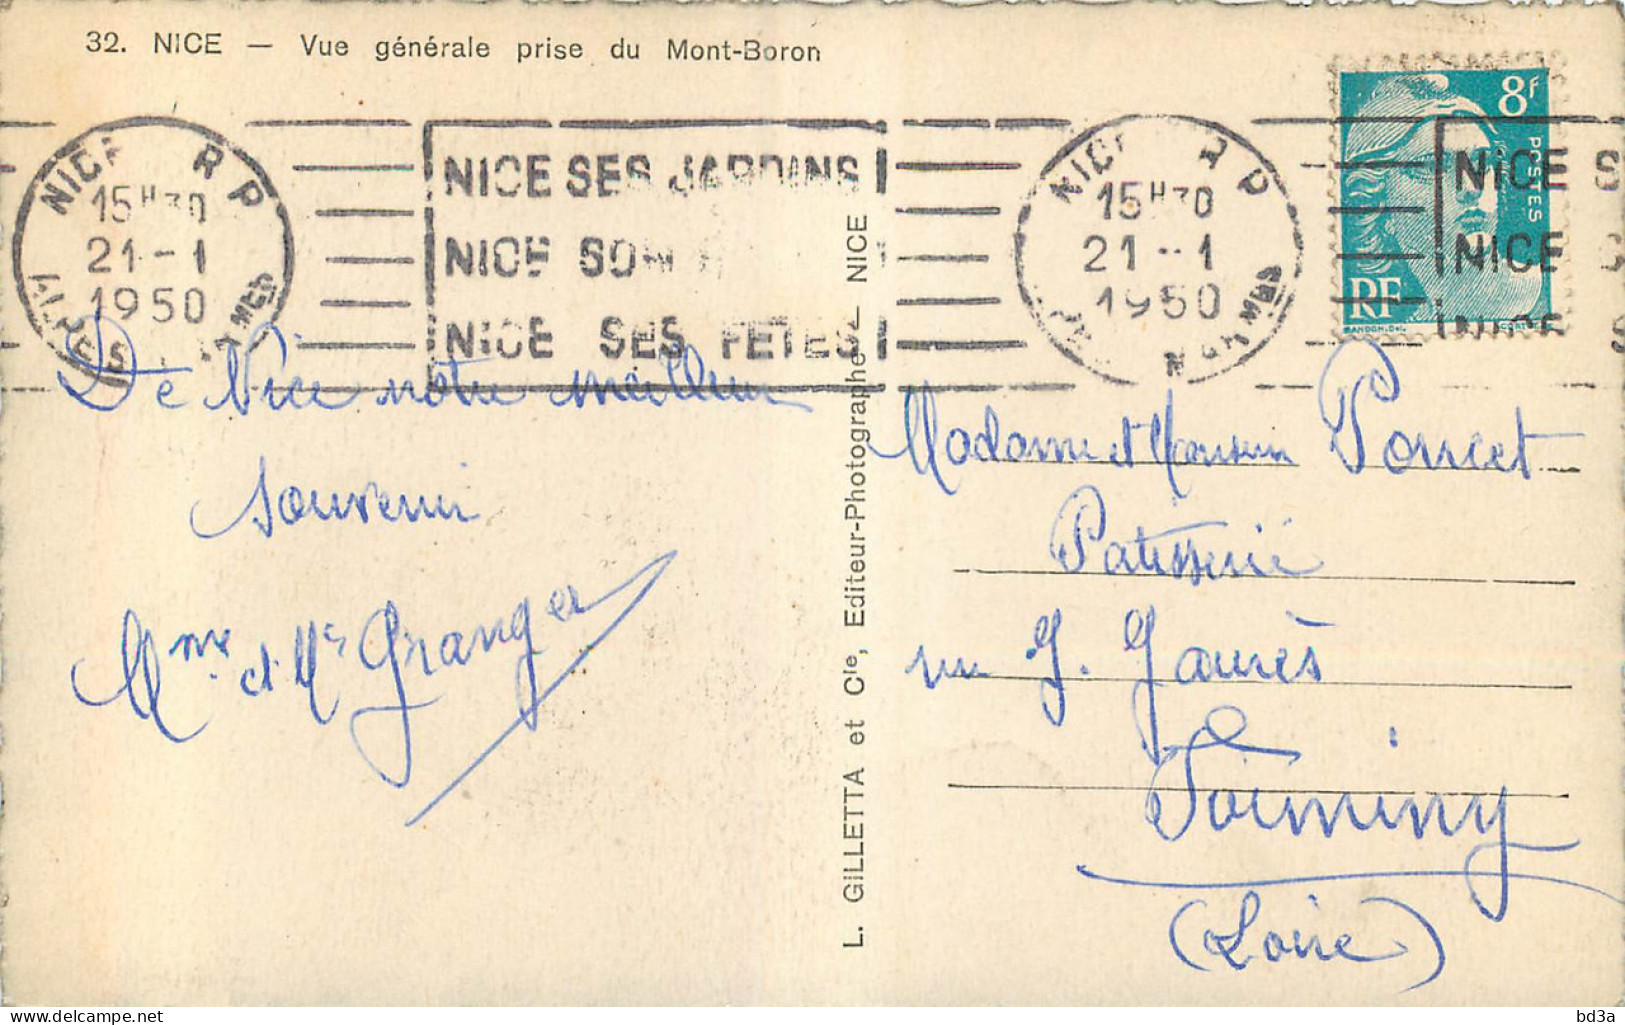 32. NICE — Vue générale prise du Mont-Boron
NICE R P
15H30
21-1
1950
ALPES MMES
NICE SES JARDINS
NICE SON
NICE SES FETES
NICE R P
15H30
21-1
1950
8F
POSTES
RF
NICE S
NICE C
NICE S
De Nice notre meilleur
souvenir
Mme et Mr Granger
L. GILLETTA et Cie, Editeur-Photographe — NICE
Madame et Monsieur Poncet
Patisserie
J. Jaurès
Firminy
(Loire)
delcampe.net
posterissimo
bd3a